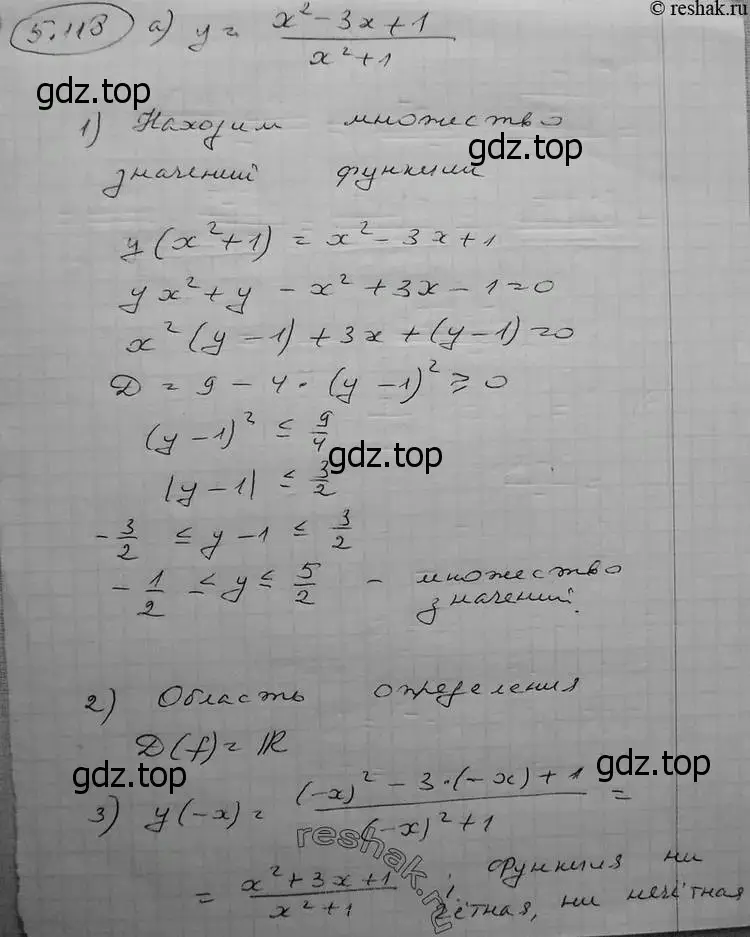 © reshak.ru
5.118 а) y = (x² - 3x + 1)/(x² + 1)
gdz.top
1) Находим множество
gdz.top
значений функции
y(x² + 1) = x² - 3x + 1
yx² + y - x² + 3x - 1 = 0
x²(y - 1) + 3x + (y - 1) = 0
D = 9 - 4·(y - 1)² ≥ 0
(y - 1)² ≤ 9/4
gdz.top
|y - 1| ≤ 3/2
-3/2 ≤ y - 1 ≤ 3/2
-1/2 ≤ y ≤ 5/2 - множество
значений.
2) Область определения
D(f) = ℝ
gdz.top
gdz.top
3) y(-x) = ((-x)² - 3·(-x) + 1)/((-x)² + 1) =
reshak.ru
= (x² + 3x + 1)/(x² + 1) ; функция ни
чётная, ни нечётная